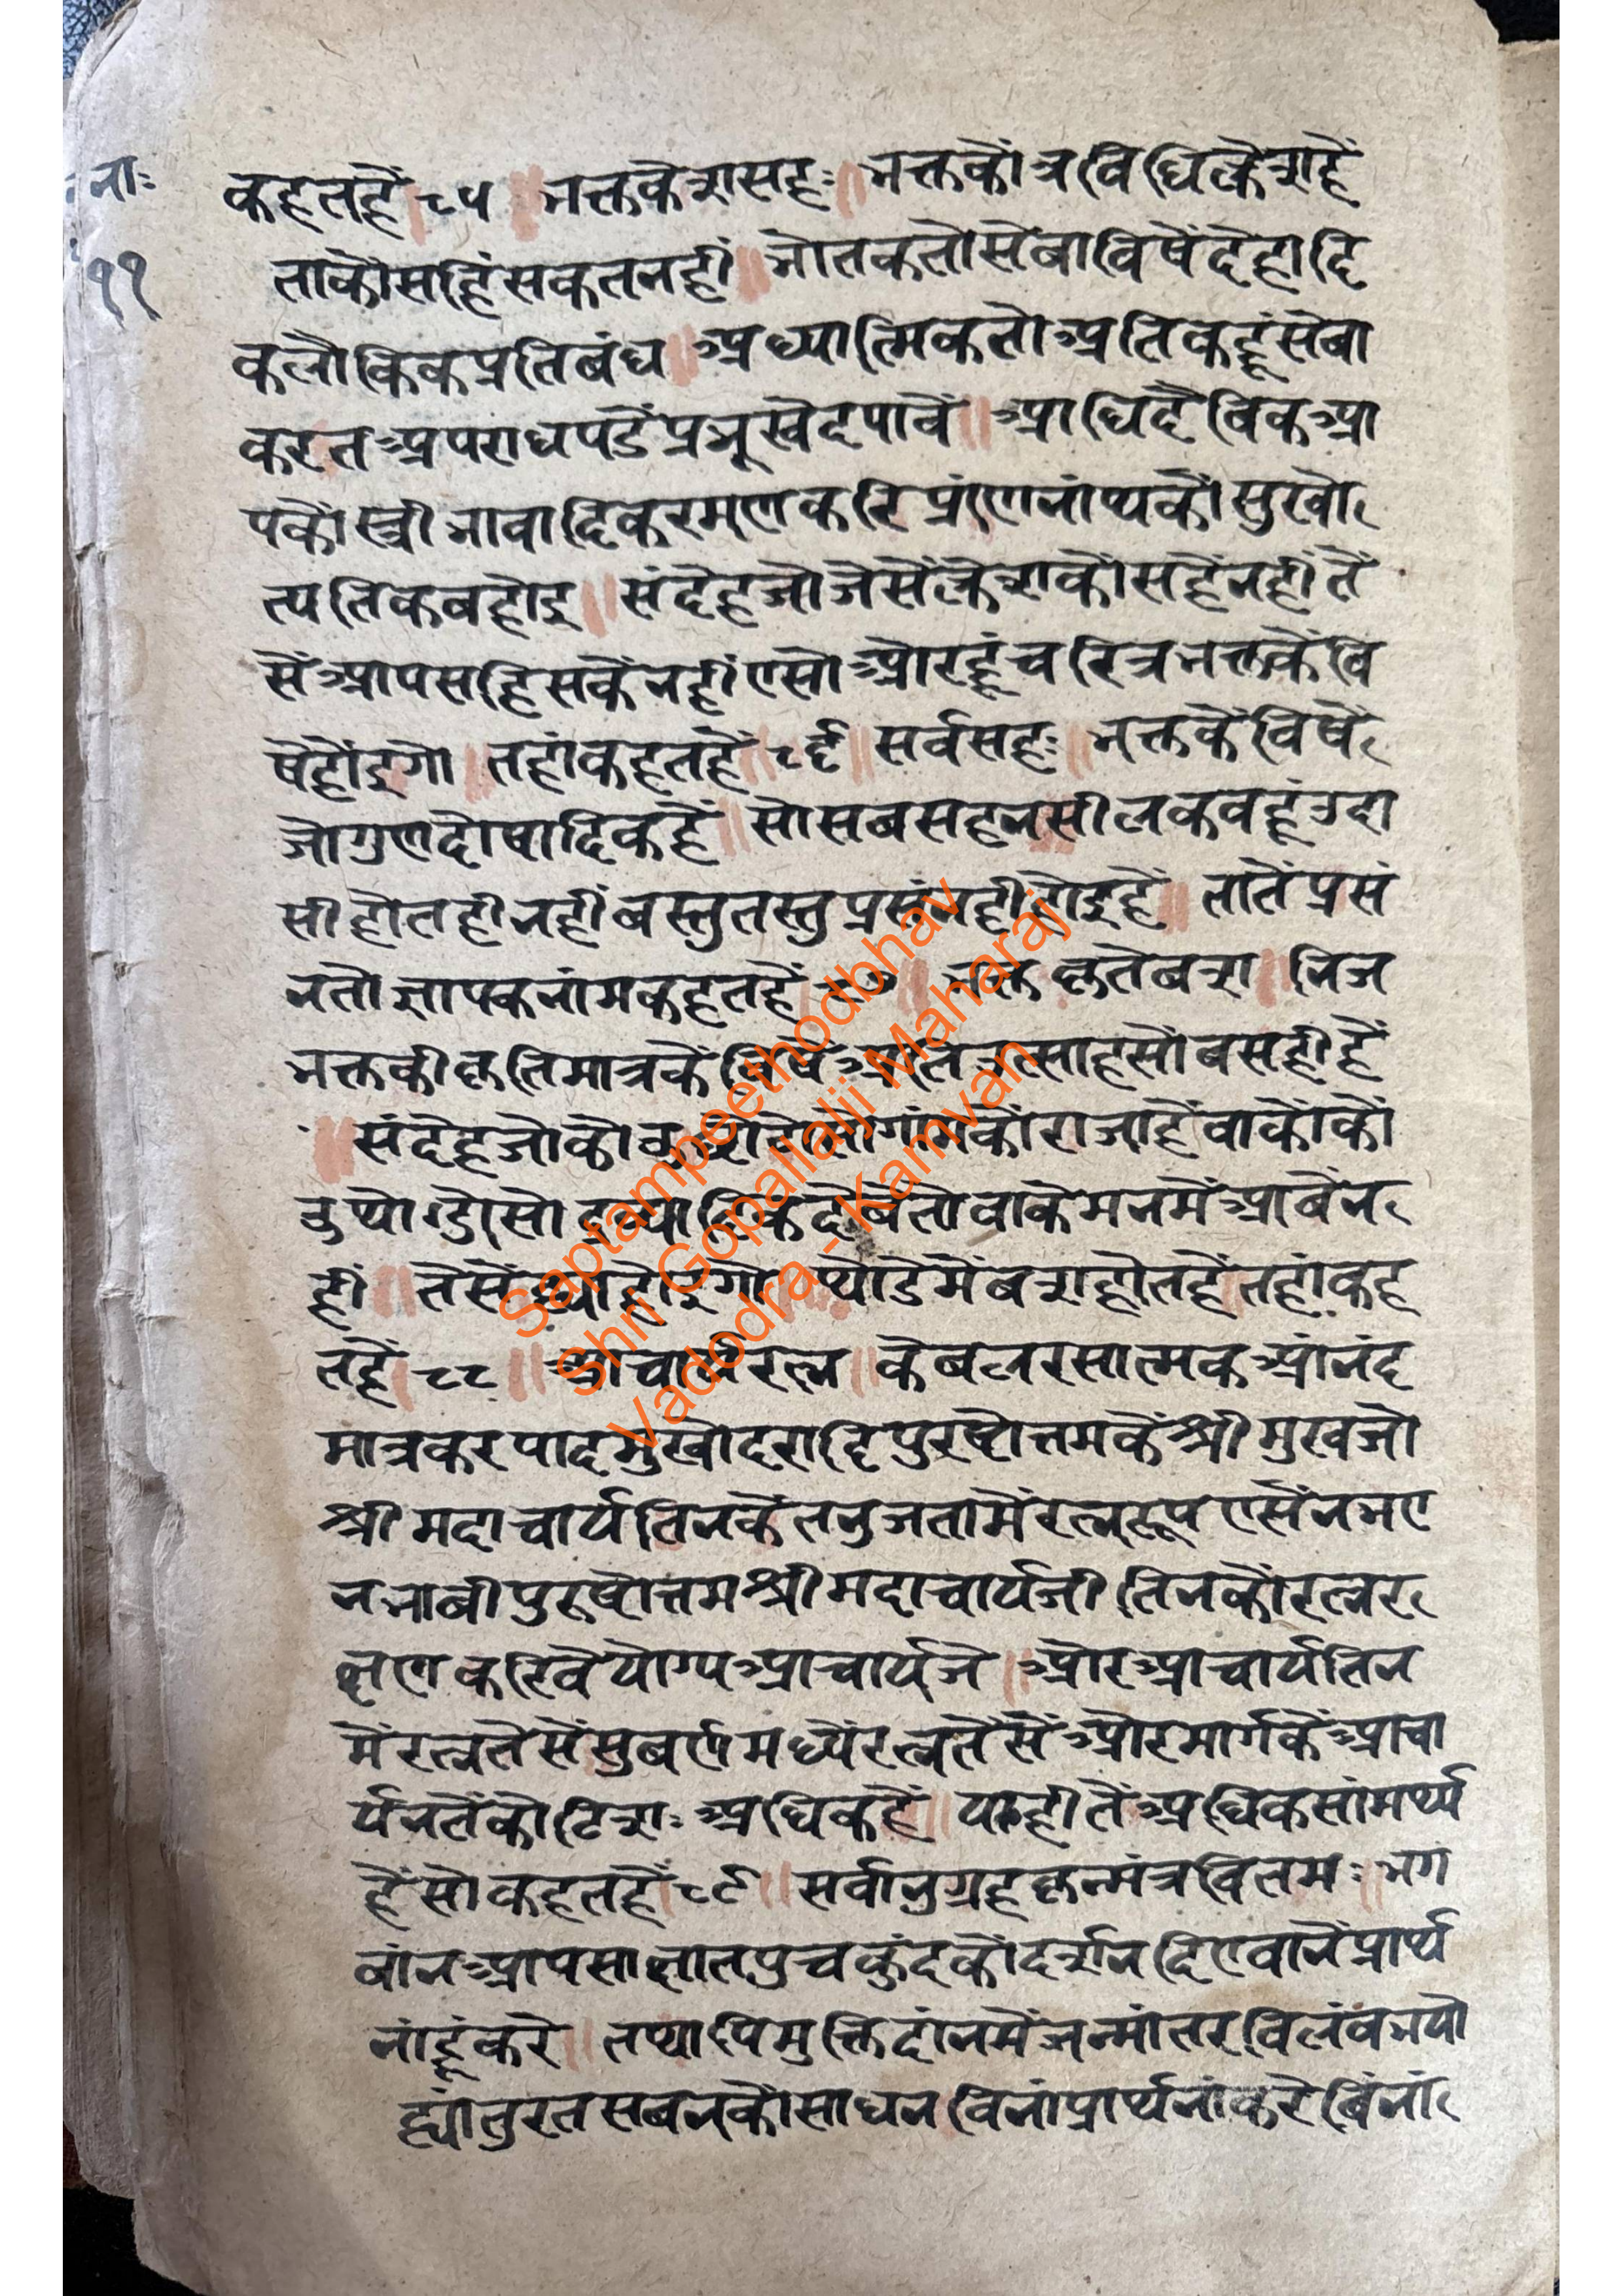 नाः
११
कहतहैं ८५ ॥ भक्तक्लेशासहः ॥ भक्तकौंत्रिविधिक्लेशहैं
ताकौंसहिंसकतनहीं ॥ भौतकतोसेवाविषैंदेहादि
कलौकिकप्रतिबंध ॥ अध्यात्मिकतोअतिकहूंसेबा
करतअपराधपडेंप्रभूखेदपावें ॥ आधिदैविकआ
पकौंस्त्रीभावादिकरमणकरिप्रांणनांथकौंसुखो
त्पतिकबहोइ ॥ संदेहजोजैसेंक्लेशकौंसहैंनहींतै
सेंआपसहिसकेंनहींएसोऔरहूंचरित्रभक्तकेंवि
षेंहोंइगो ॥ तहांकहतहैं ८६ ॥ सर्वसहः ॥ भक्तकेंविषें
जोगुणदोषादिकहैं ॥ सोसबसहनसीलकवहूंउदा
सीहोतहीनहींबस्तुतस्तुप्रसंनहीहोइहैं ॥ तातेंप्रसं
नतोज्ञापकनांमकहतहैं ८७ ॥ भक्तकृतेबशा ॥ निज
भक्तकीकृतिमात्रकेंविषेंअतिउत्साहसोंबसहीहैं
॥ संदेहजोकोउ गांमकौंराजाहैंवाकौंकों
द्रव्यादिकदेबेतोवाकेमनमेंआबेंन
हीं ॥ तैसें होइगो ॥ थोडेमेंबशहोतहैंतहांकह
तहैं ८८ ॥ आचार्यरत्न ॥ केबलरसात्मकआंनंद
मात्रकरपादमुखोदरादिपुरषोत्तमकेंश्रीमुखजो
श्रीमदाचार्यतिनकेंतनुजतामेंरत्नरूपएसेंनभए
नभाबीपुरूषोत्तमश्रीमदाचार्यजीतिनकौंरत्नर
क्षणकरिवेयोग्यआचार्यजे ॥ औरआचार्यतिन
मेंरत्नतेसेंसुबर्णमध्येंरत्नतेसेंऔरमार्गकेंआचा
र्यनतेंकोटिशः अधिकहैं ॥ याहीतेंअधिकसांमर्थ्य
हैंसोकहतहैं ८९ ॥ सर्वानुग्रहकृन्मंत्रवितमः ॥ भग
बांनआपसाक्षातपुचकुंदकौंदर्शनदिएवानेंप्रार्थ
नांहूंकरे ॥ तथापिमुक्तिदांनमेंजन्मांतरविलंवभयो
ह्यांतुरतसबनकौंसाधनविनांप्रार्थनांकरेबिंनां